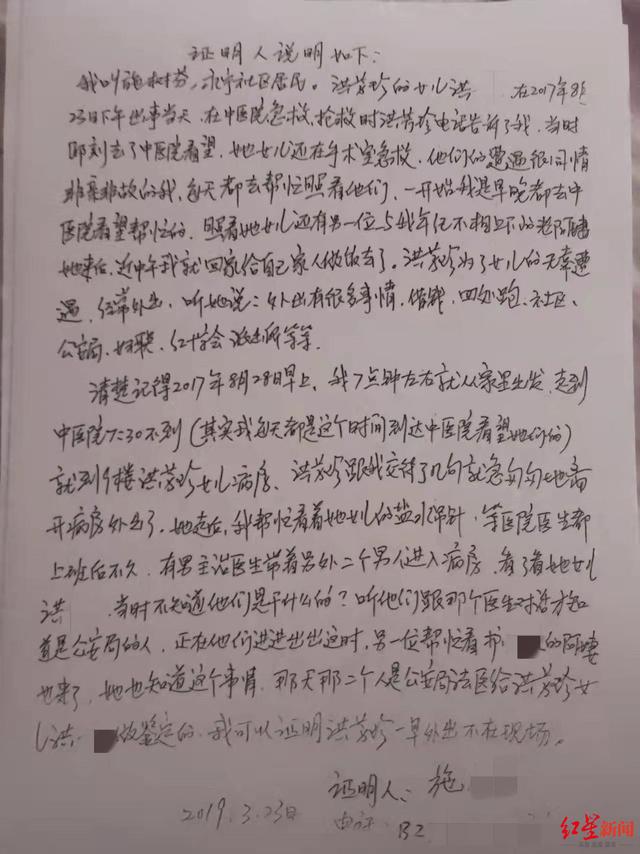 证明人说明如下：
我叫施树芬，永宁社区居民。洪芳珍的女儿洪 在2017年8月
23日下午出事当天，在中医院急救，抢救时洪芳珍电话告诉了我，当时
即刻去了中医院看望，她女儿还在手术室急救，他们的遭遇很同情
非亲非故的我，每天都去帮忙照看他们，一开始我是早晚都去中
医院看望帮忙的，照看她女儿还有另一位与我年纪不相上下的老阿姨
她来后，近中午我就回家给自己家人做饭去了。洪芳珍为了女儿的无辜遭
遇，经常外出，听她说：外出有很多事情，借钱，四处跑、社区、
公安局、妇联、红十字会 派出所等等。
清楚记得2017年8月28日早上，我7点钟左右就从家里出发，走到
中医院7:30不到（其实我每天都是这个时间到达中医院看望她们的）
就到 楼洪芳珍女儿病房、洪芳珍跟我交待了几句就急匆匆地离
开病房外出了。她走后，我帮忙看着她女儿的盐水吊针，等医院医生都
上班后不久，有男主治医生带着另外二个男人进入病房，看了看她女儿
洪 当时不知道他们是干什么的？听他们跟那个医生对话才知
道是公安局的人，正在他们进进出出这时，另一位帮忙看护 的阿姨
也来了，她也知道这个事情，那天那二个人是公安局法医给洪芳珍女
儿洪 做鉴定的、我可以证明洪芳珍一早外出不在现场。
证明人：施
2019.3.23日
电话 132
红星新闻